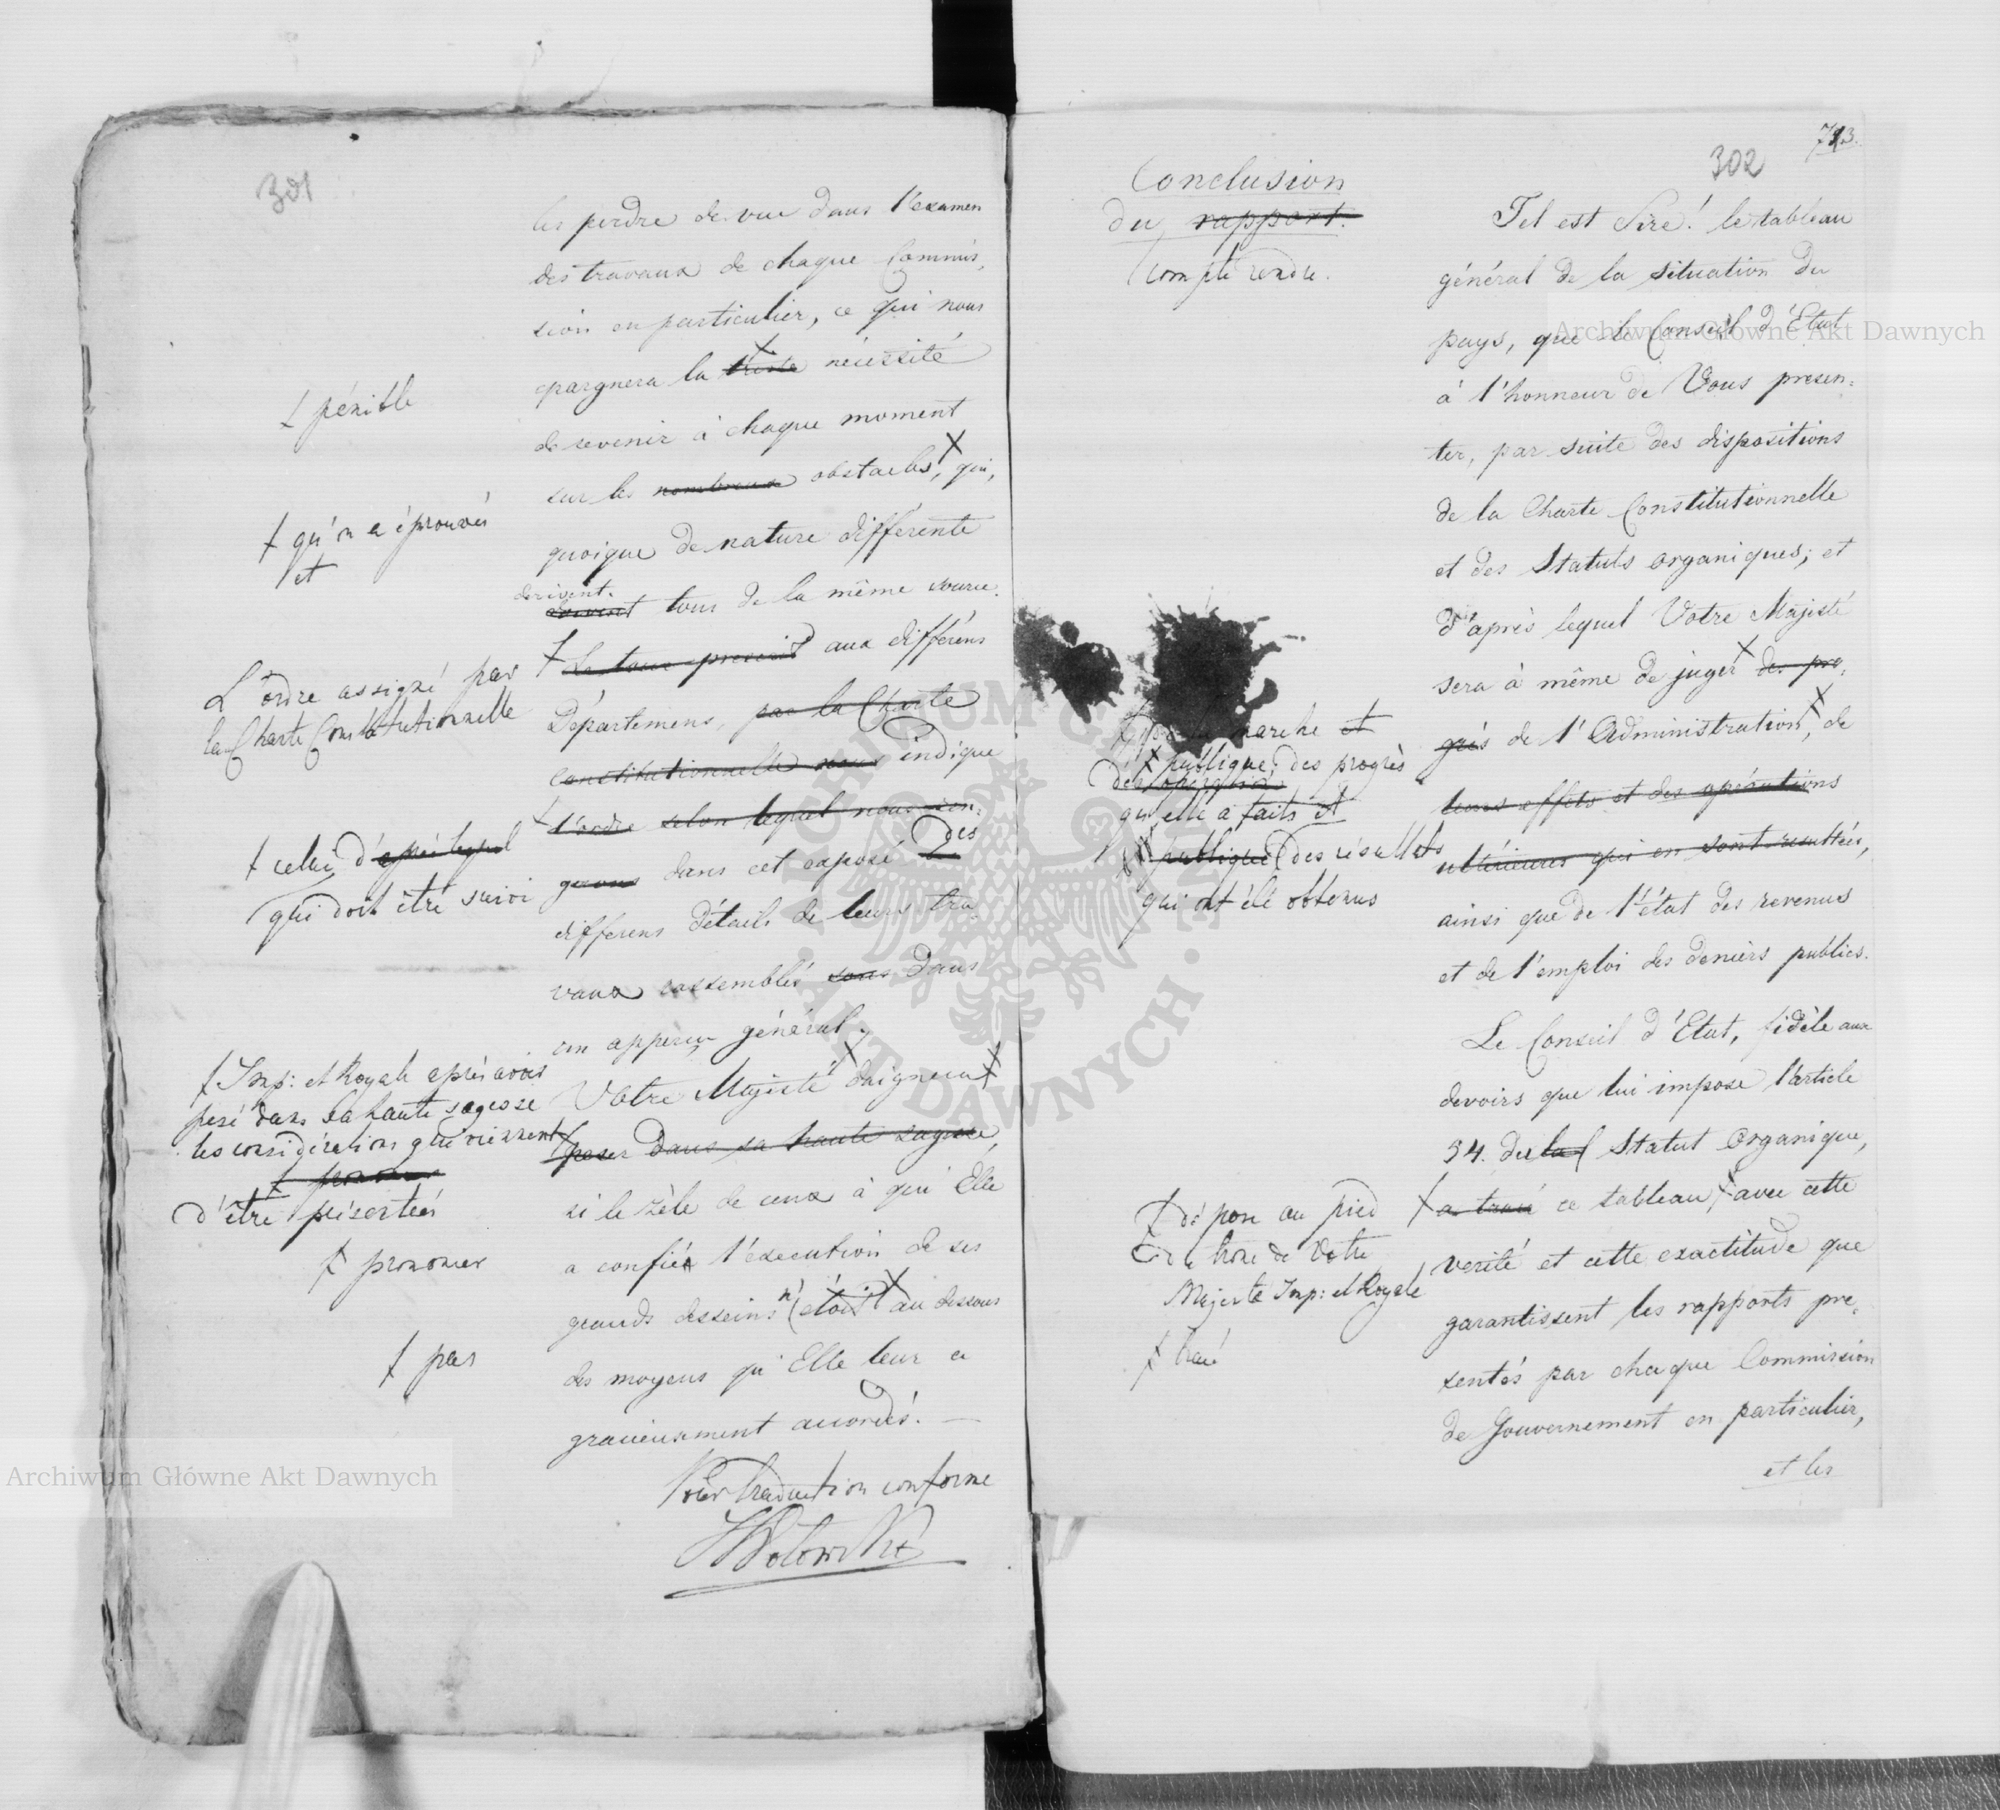 301
les perdre de vue dans l'examen
des travaux de chaque Commis,
sion en particulier, ce qui nous
epargnera la triste nécessité
de revenir à chaque moment
sur les nombreux obstacles, qui,
quoique de nature différente
derivent.
tous de la même source.
Le tous aux différens
Départemens, par la Charte
constitutionnelle nous indique
l'ordre selon lequel nous
dans cet exposé Des
differens détails de leurs tra,
vaux rassemblés sous dans
un apperçu général.
Votre Majesté daignera
peser dans sa haute sagesse,
si le zèle de ceux à qui Elle
a confié l'execution de ses
grands desseins n' etoit au dessous
des moyens qu'Elle leur a
gracieusement accordés. —
Pour traduction conforme
† pénible
† qu'on a éprouvés
et
L'ordre assigné par
la Charte Constitutionnelle
† celui d'après lequel
qui doit être suivi
† Imp: et Royale après avoir
pesé dans sa haute sagesse
les considérations qui viennent
d'être présentées
† prononcer
† pas
713.
302
Conclusion
du rapport.
Compte rendu.
Tel est Sire! le tableau
général de la situation du
pays, que le Conseil d'Etat
à l'honneur de Vous presen=
ter, par suite des dispositions
de la Charte Constitutionnelle
et des Statuts organiques; et
d'après lequel Votre Majesté
sera à même de juger des pro=
grès de l'Administration, de
leurs effets et des opérations
ultérieures qui en sont resultées,
ainsi que de l'état des revenus
et de l'emploi des deniers publics.
Le Conseil d'Etat, fidèle aux
devoirs que lui impose l'article
34. du Statut Organique,
a tracé ce tableau avec cette
verité et cette exactitude que
garantissent les rapports pre=
sentés par chaque Commission
de Gouvernement en particulier,
et les
marche et
† publique, des progrès
qu'elle a faits et
publique des résultats
qui ont été obtenus
† dépose au pied
du trône de Votre
Majesté Imp: et Royale
† tracé
Archiwum Główne Akt Dawnych
Archiwum Główne Akt Dawnych
ARCHIWUM GŁÓWNE AKT DAWNYCH